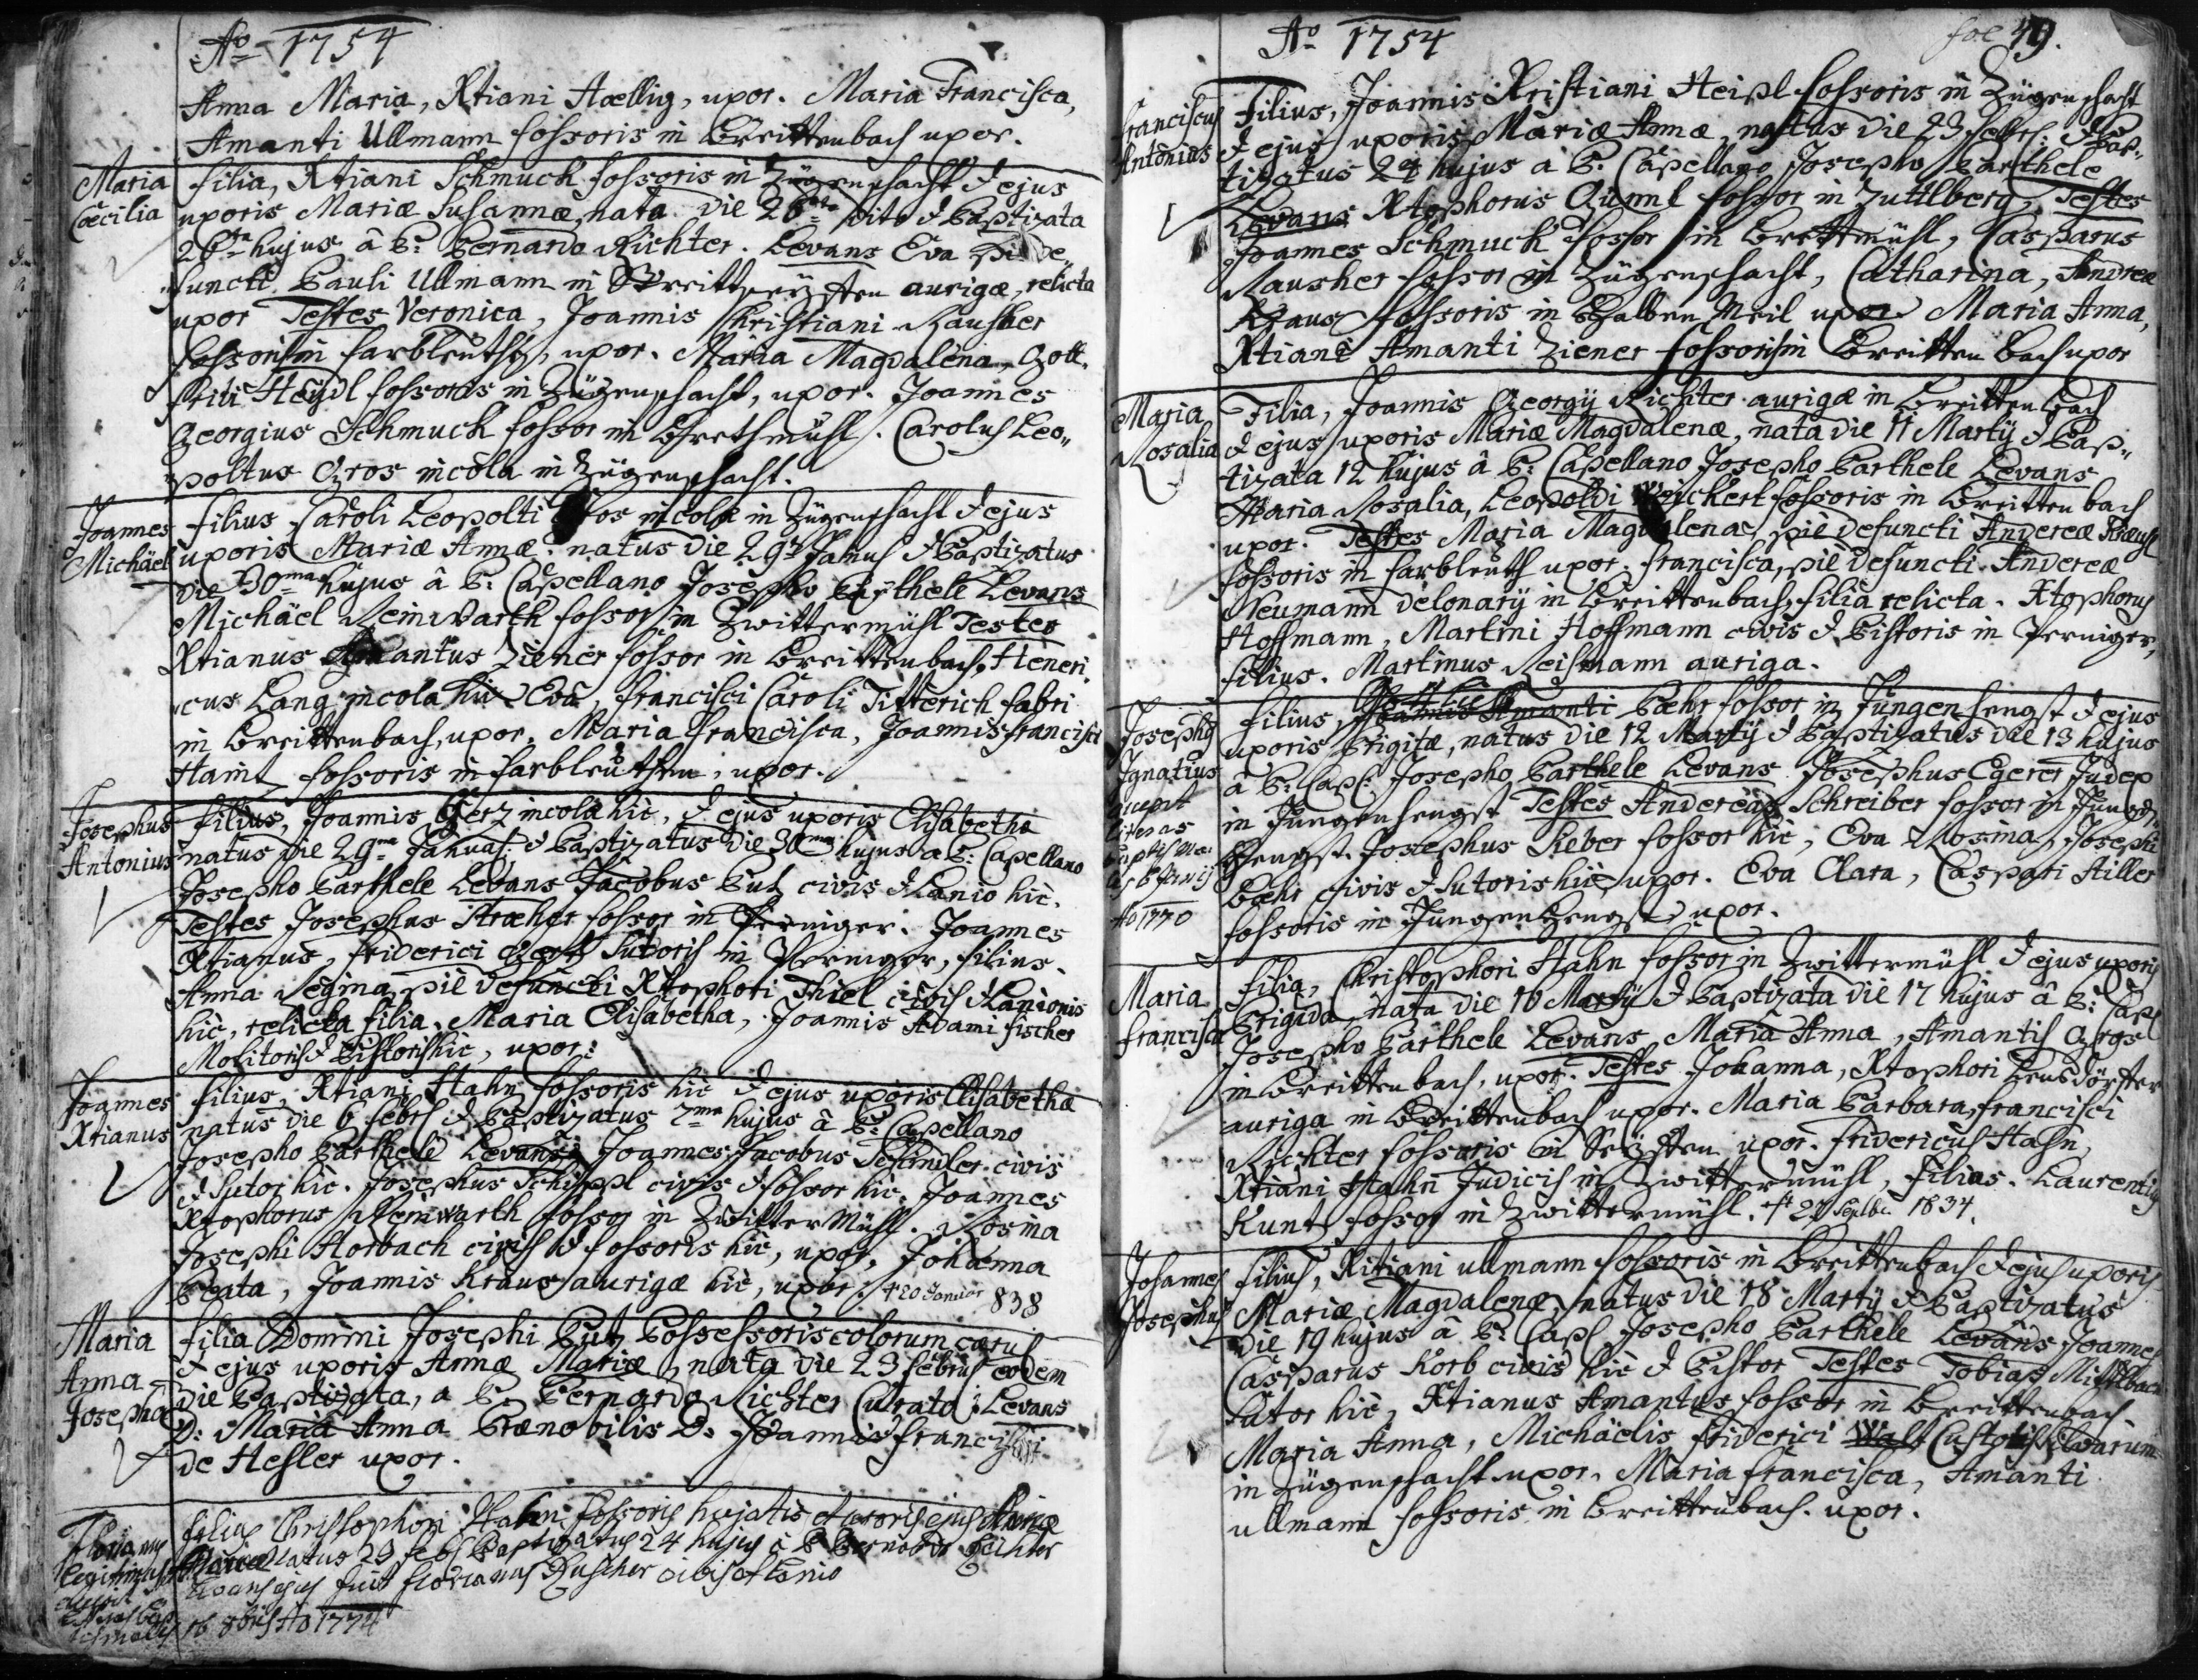 Ao 1754
Anna Maria, Xtiani Hoellig, uxor. Maria Francisca,
Amanti Ullmann fossoris in Breittenbach uxor.
Maria Cæcilia
filia, Xtiani Schmuck fossoris in Zügenschacht & ejus
uxoris Mariæ Susannæ, nata die 26ta dito & Baptizata
hujus â P: Bernardo Richter. Levans Eva pie de„
functi Pauli Ullmann in aurigæ, relicta
uxor Testes Veronica, Joannis Christiani Rauscher
fossoris in farbleuthn, uxor. Maria Magdalena, Gott„
fridi Heidl fossoris in Zügenschacht, uxor. Joannes
Georgius Schmuck fossor in Brethmühl. Carolus Leo„
poltus Gros incola in Zügenschacht.
Joannes Michäel
filius Caroli Leopolti incolæ in Zügenschacht & ejus
uxoris Mariæ Annæ. natus die 29 & Baptizatus
die 30ma hujus â P: Capellano Josepho Barthele Levans
Michäel Reinwarth fossor in Zwittermühl Testes
Xtianus Amantus Ziener fossor in Breittenbach, Henri„
cus Lang incola hic Eva, francisci Caroli Titterich fabri
in Breittenbach, uxor. Maria francisca, Joannis francisci
fossoris in farbleuthen, uxor.
Josephus Antonius
filius, Joannis incola hic, & ejus uxoris Elisabetha
natus die 29na & Baptizatus die 30ma hujus a P: Capellano
Josepho Barthele Levans Jacobus Putz civis & Lanio hic.
Testes Josephus fossor in Perniger. Joannes
Xtianus, friderici Sutoris in Perniger, filius.
Anna Regina, pie defuncti Xtophori Thiel civis & Lanionis
hic, relicta filia. Maria Elisabetha, Joannis Adami fischer
Molitoris & Pistoris hic, uxor.
Joannes Xtianus
filius, Xtiani Hahn fossoris hic & ejus uxoris Elisabethæ
natus die 6 febr & Baptizatus 7ma hujus â P: Capellano
Josepho Barthele Levans, Joannes Jacobus Schindler civis
& Sutor hic. Josephus Schippl civis & fossor hic. Joannes
Xtophorus Reinwarth fossor in Zwittermühl. Rosina
Josephi Horbach civis & fossoris hic, uxor, Johanna
Beata, Joannis Kraus aurigæ hic, uxor. † 20 Januar 838
Maria Anna Josepha
filia Domini Josephi Putz Possessoris colorum cærul
& ejus uxoris Annæ Mariæ, nata die 23 eodem
die Baptizata, a P. Bernardo Richter Curato: Levans
D: Maria Anna Prænobilis D. Joannis francisci
de Hessler uxor.
Florianus
filius Christophori Hahn fossoris hujatis et uxoris ejus Annæ
Mariæ Natus 23 feb Baptizatus 24 hujus â P Bernardo Richter
Levans ejus fuit Florianus civis et Lanio
16 8bris Ao 1774
Ao 1754
fol 49.
Franciscus Antonius
Filius, Joannis Kristiani Heipl fossoris in Zügenschacht
& ejus uxoris Mariæ Annæ, natus die 23 & Bap„
tizatus 24 hujus a P: Capellano Josepho Barthele
Levans Xtophorus fossor in Testes
Joannes Schmuck fossor in Brettmühl, Casparus
Rauscher fossor in Zügenschacht, Catharina, Andreæ
Kraus fossoris in Halben Meil uxor Maria Anna,
Xtiani Amanti Ziener fossoris in Breittenbach uxor
Maria Rosalia
Filia, Joannis Georgÿ Richter aurigæ in Breittenbach
& ejus uxoris Mariæ Magdalenæ, nata die 11 Martÿ & Bap„
tizata 12 hujus â P: Capellano Josepho Barthele Levans
Maria Rosalia, Leopoldi fossoris in Breittenbach
uxor. Testes Maria Magdalena, piè defuncti Andereæ
fossoris in farbleuth uxor. francisca, piè defuncti Andereæ
Neumann in Breittenbach, filia relicta. Xtophorus
Hoffmann, Martini Hoffmann civis & Pistoris in Perniger,
filius. Martinus Reismann auriga.
Josephus Ignatius
accepit literas baptismales
Ao 1770
filius, Joannis Amanti Bæhr fossor in Jungenhengst & ejus
uxoris Brigitæ, natus die 12 Martÿ & Baptizatus die 13 hujus
â P: Capl: Josepho Barthele Levans Josephus Egerer Judex
in Jungenhengst Testes Andereas Schreiber fossor in Jungen„
hengst. Josephus Reber fossor hic, Eva Rosina, Josephi
Bæhr civis & Sutoris hic uxor. Eva Clara, Caspari Hiller
fossoris in Jungenhengst uxor.
Maria Francisca
filia, Christophori Hahn fossor in Zwittermühl & ejus uxoris
Brigida, nata die 16 Martÿ & Baptizata die 17 hujus â P: Capl
Josepho Barthele Levans Maria Anna, Amantis Gros
in Breittenbach, uxor. Testes Johanna, Xtophori
auriga in Breittenbach uxor. Maria Barbara, francisci
Richter fossoris in uxor. fridericus Hahn,
Xtiani Hahn Judicis in Zwittermühl, filius. Laurentius
Kuntz fossor in Zwittermühl. † 21 Septbr 1834.
Johannes Josephus
filius, Xtiani ullmann fossoris in Breittenbach & ejus uxoris
Mariæ Magdalenæ, natus die 18 Martÿ & Baptizatus
die 19 hujus â P. Capl Josepho Barthele Levans Joannes
Casparus Korb civis hic & Pistor Testes Tobias
Sutor hic, Xtianus Amantus fossor in Breittenbach
Maria Anna, Michäelis friderici Custodis silvarum
in Zügenschacht uxor. Maria francisca, Amanti
ullmann fossoris in Breittenbach. uxor.